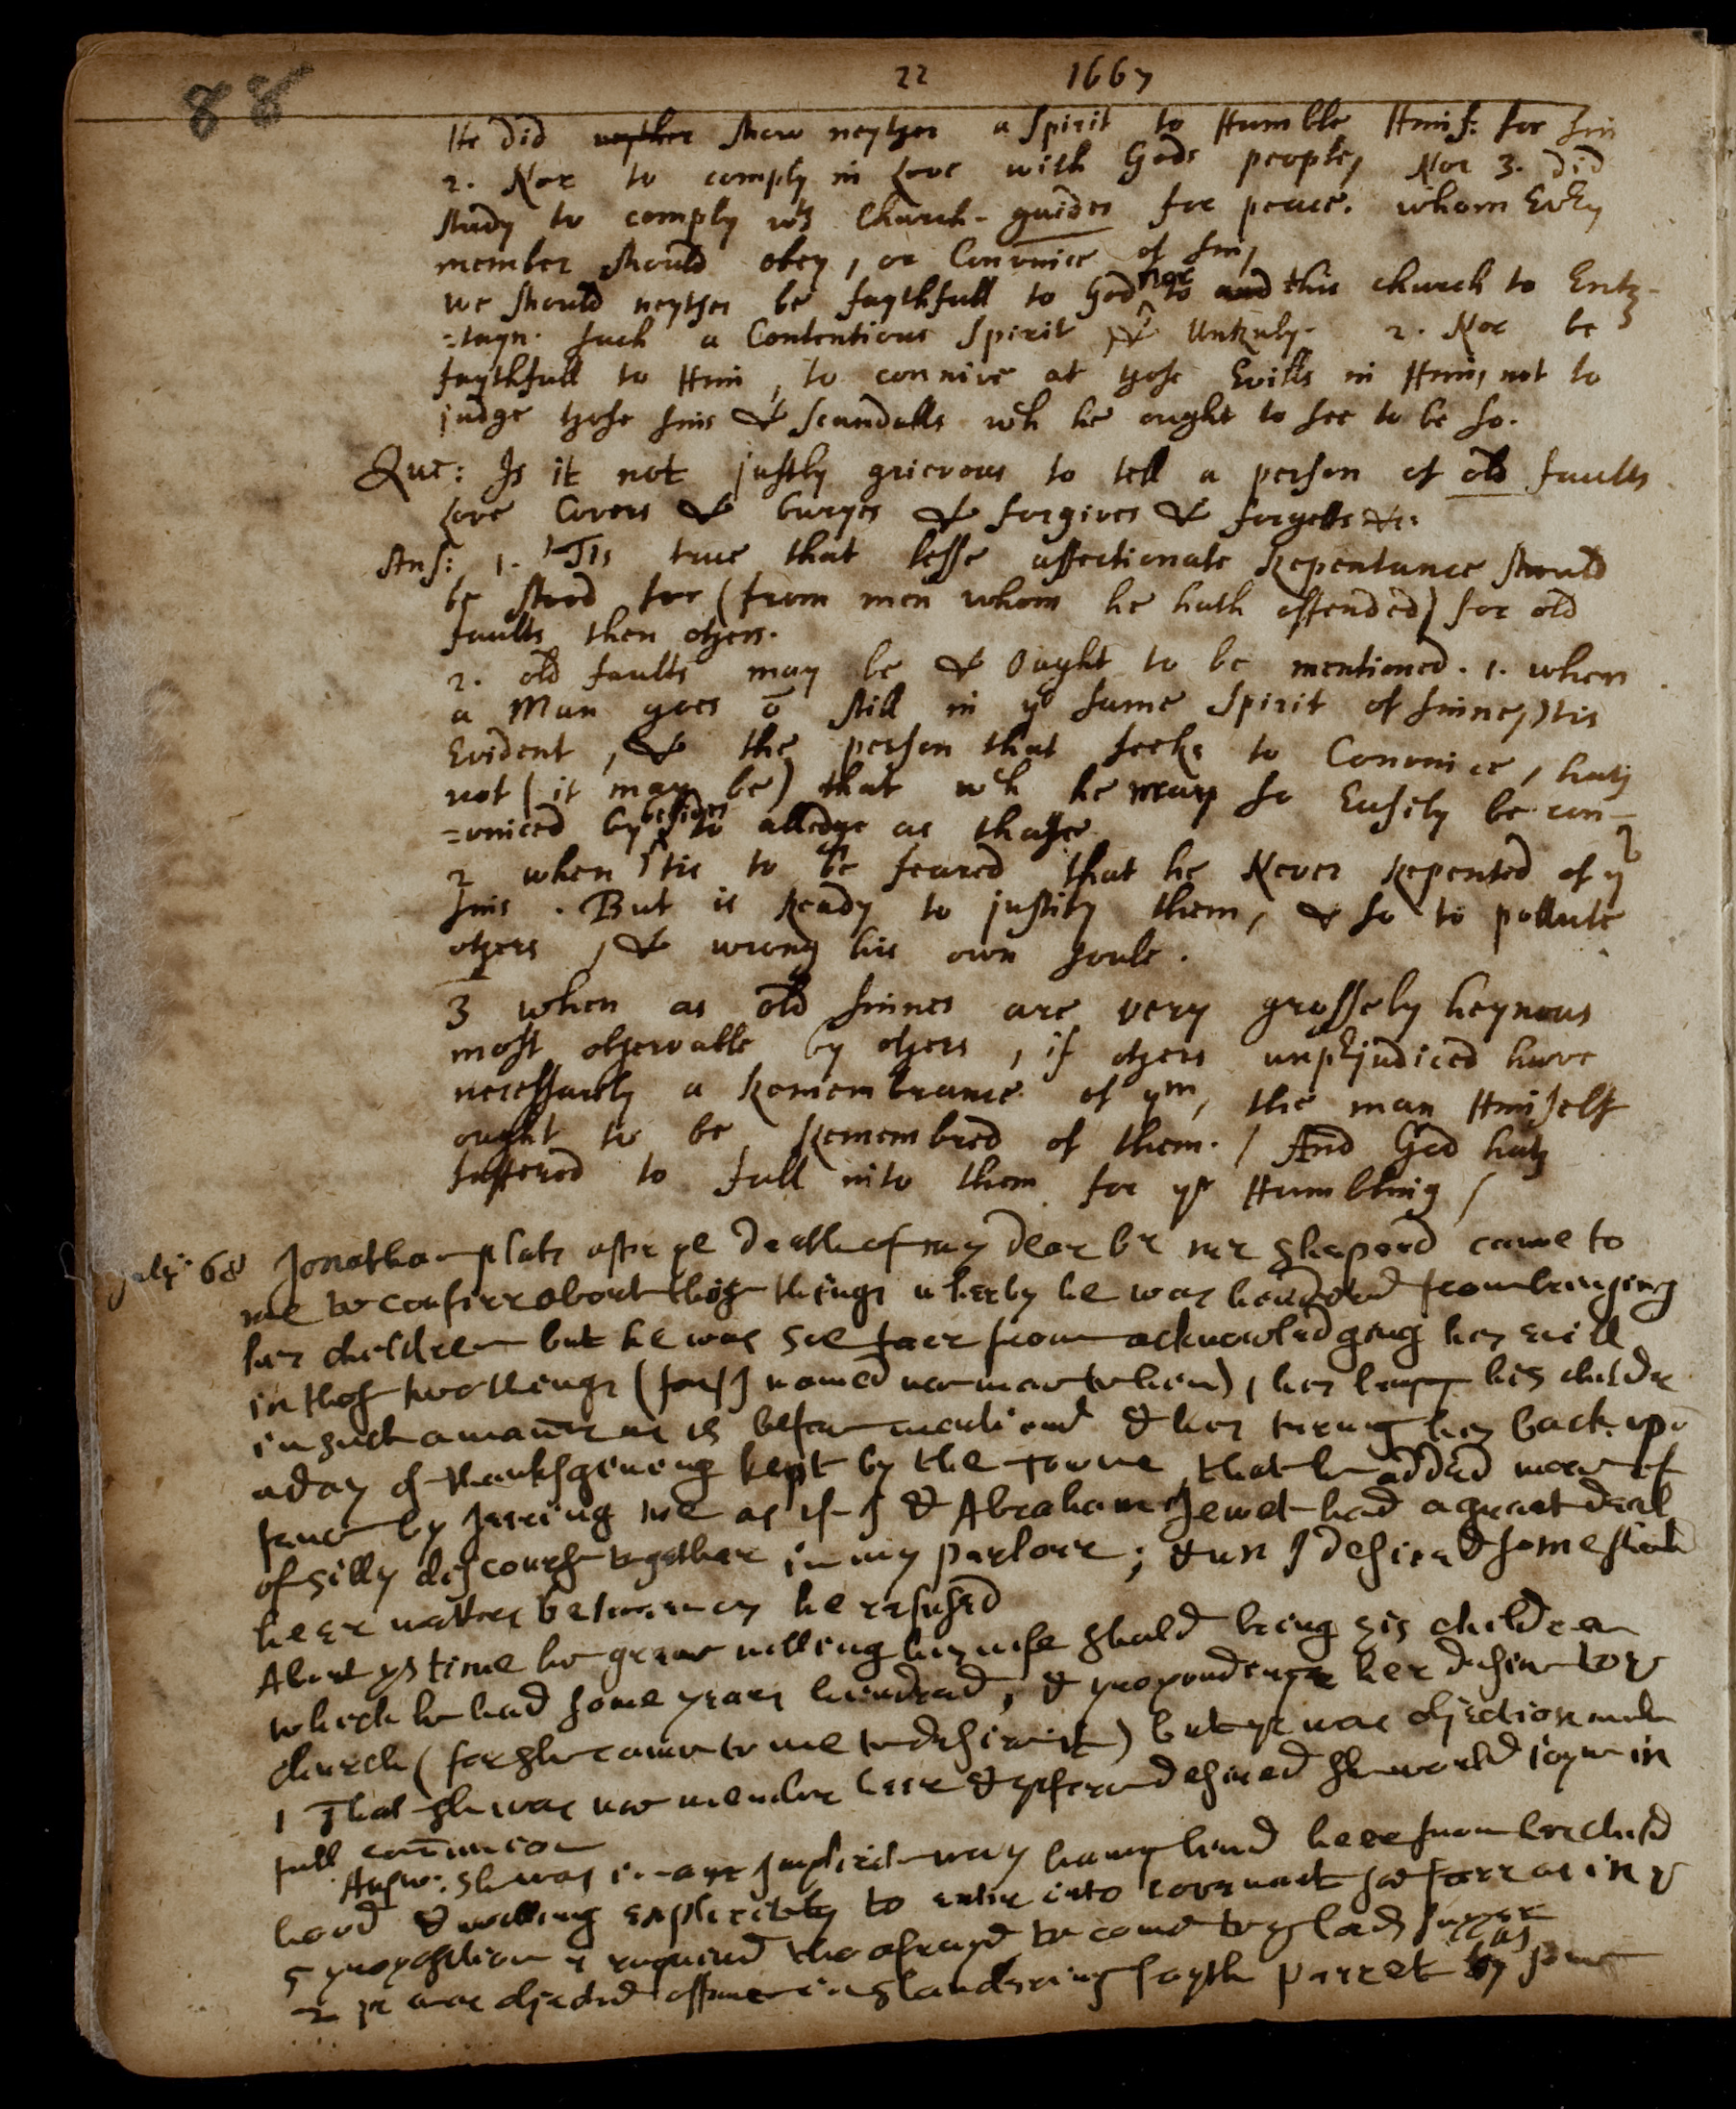 88
22 1667
He did neyther shew neyther a spirit to Humble Hims: for sin
2. Nor to comply in Love with Gods people, Nor 3. did
study to comply wth Church-guides for peace. whom Evry
member should obey, or Convince of sin,
we should neyther be faythfull to God nor to and this church to Entr-
=tayn. such a Contentious spirit & Unruly. 2. Nor be
faythfull to Him, to connive at those Evills in Him, not to
judge those sins & scandalls wh he ought to see to be so.
Que: Is it not justly grievous to tell a person of old faults
Love Covers & buryes & forgives & forgetts &c.
Ans: 1. 'Tis true that lesse affectionate Repentance should
be stood for (from men whom he hath offended) for old
faults then others.
2. old faults may be & ought to be mentioned. 1. when
a Man goes ō still in ye same spirit of sinne, 'tis
Evident, & the person that seeks to Convince, hath
not (it may be) that wh he may so Easily be con-
=vinced by besides to alledge as those
2 when 'tis to be feared that he Never Repented of ye
sins. But is Ready to justify them, & so to pollute
others, & wrong his own soule.
3 when as old sinnes are very grossely heynous
most observable by others, if others unprejudiced have
necessarily a Remembrance of ym, the man Himselfe
ought to be Remembred of them. / And God hath
suffered to fall into them for yr Humbling /
July: 68 Jonathan plats after ye death of my dear br mr sheperd came to
me to conferr about thos things wherby he was hendered from bringing
his children but he was soe farr from acknowledging his evill
in thos two things (for I named no mor to him), his his childre
in such a man̄er as is before mentioned & his turning his back upō
a day of thanksgiveing kept by the towne that he added mor of
by jeering me as if I & Abraham Jewet had a great deal
of silly discourse together in my parlour; & wn I desired some should
heer matters betweene us he refused
About ys time he grew willing his wife should bring his children
which he had some years hendred, & propounding her desire to ye
church (for she came to me to desire it) but yr was objection made
1 That she was no member here & yrfore desired she would joyn in
full com̄union
Answ: she was in an Implicit way having lived here from her child
hood & willing explicitly to enter into covenant so farr as in ye
5 proposition is required tho afrayd to come to ye Lads supper
2 yr was objected offence in slandering fayth parret by some